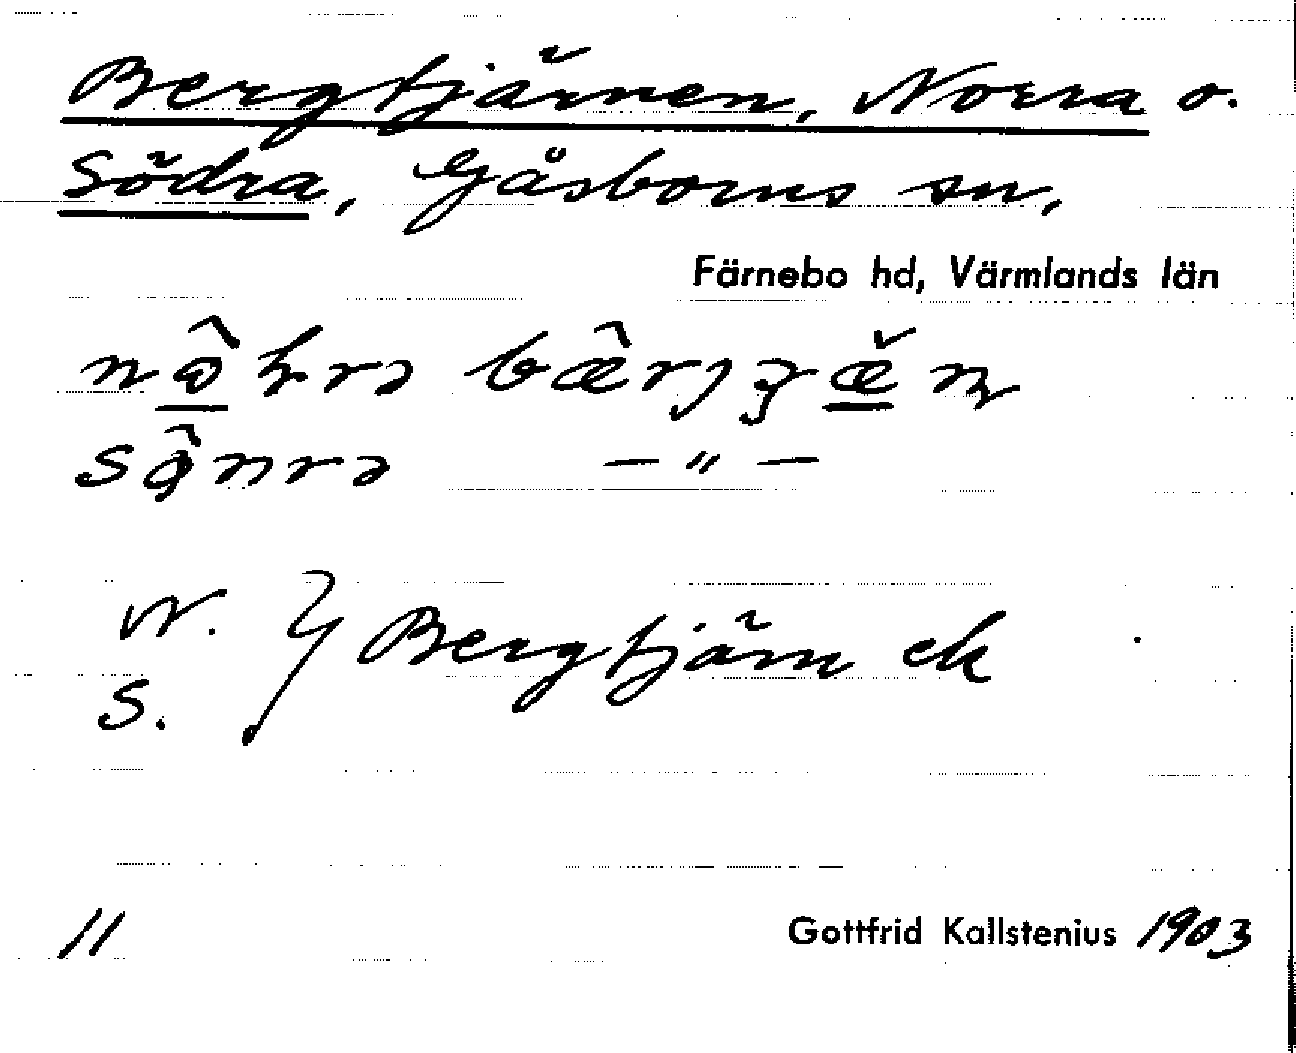 Bergtjärnen, Norra o.
Södra, Gåsborns sn,
Färnebo hd, Värmlands län
— " —
N.
S. } Bergtjärn ek
11
Gottfrid Kallstenius 1903